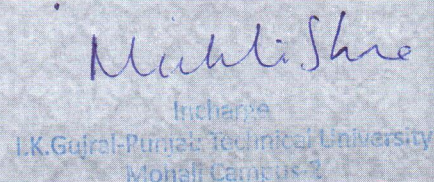 Incharge
I.K.Gujral-Punjab Technical University
Mohali Campus-2